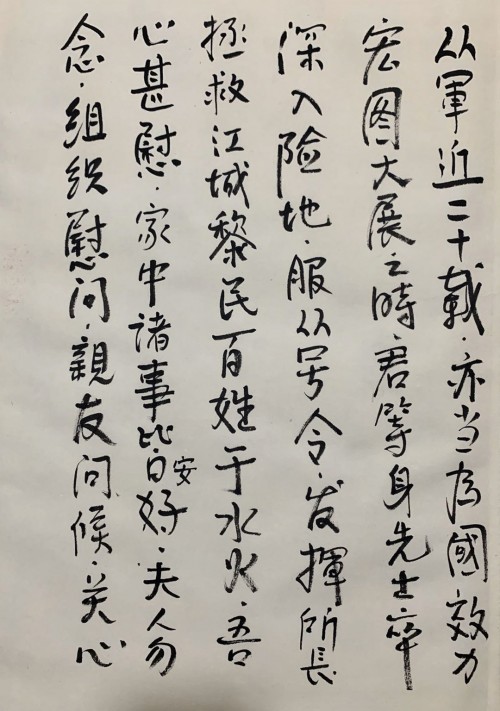 从軍近二十載.亦当為國效力
宏图大展之時.君等身先士卒
深入险地.服从号令.发揮所長
拯救江城黎民百姓于水火.吾
心甚慰.家中诸事皆安好.夫人勿
念.组织慰问.親友问候.关心